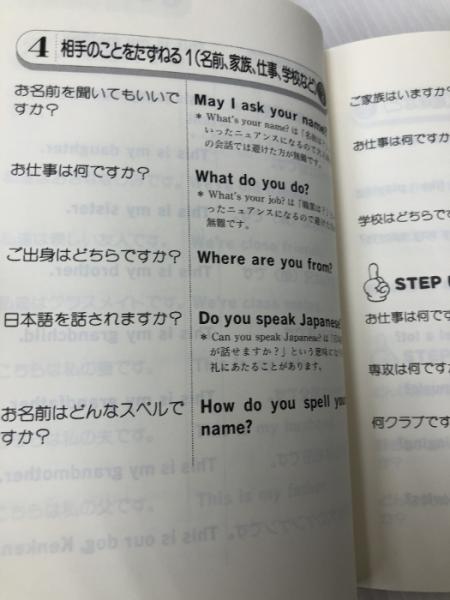 4 相手のことをたずねる 1(名前、家族、仕事、学校など)
お名前を聞いてもいいで
すか?
May I ask your name?
* What's your name? は「名前は?」
いったニュアンスになるので
の会話では避けた方が無難です。
お仕事は何ですか?
What do you do?
* What's your job? は「職業は?」
ったニュアンスになるので避けた
無難です。
ご出身はどちらですか?
Where are you from?
日本語を話されますか?
Do you speak Japanese?
* Can you speak Japanese? は
が話せますか?」という意味にな
礼にあたることがあります。
お名前はどんなスペルで
すか?
How do you spell your
name?
ご家族はいますか?
お仕事は何ですか
学校はどちらです
STEP U
お仕事は何です
専攻は何ですか
何クラブです